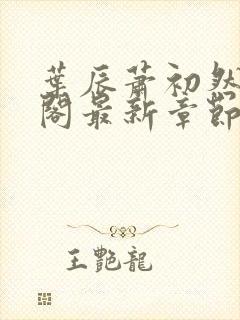 葉辰蕭初然
閣最新章節
王艷龍